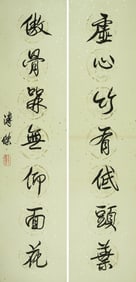 虛心竹有低頭葉
傲骨槑無仰面花
溥傑